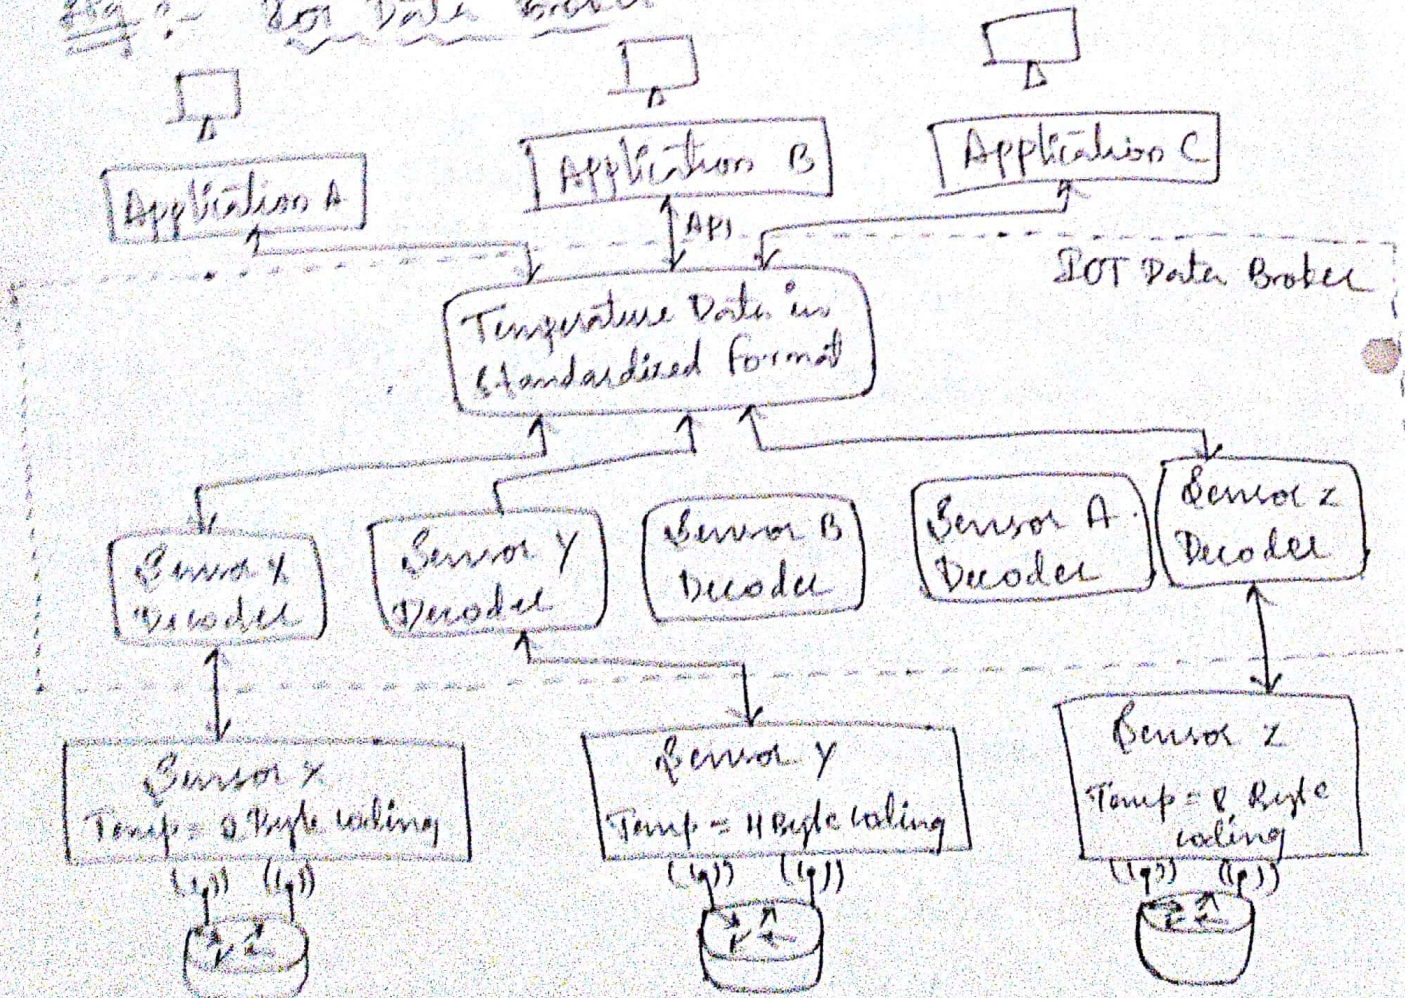 Fig :- IOT Data Broker
Application A
Application B
Application C
API
IOT Data Broker
Temperature Data in
Standardized Format
Sensor X
Decoder
Sensor Y
Decoder
Sensor B
Decoder
Sensor A
Decoder
Sensor Z
Decoder
Sensor X
Temp = Byte coding
Sensor Y
Temp = Byte coding
Sensor Z
Temp = 8 Byte
coding